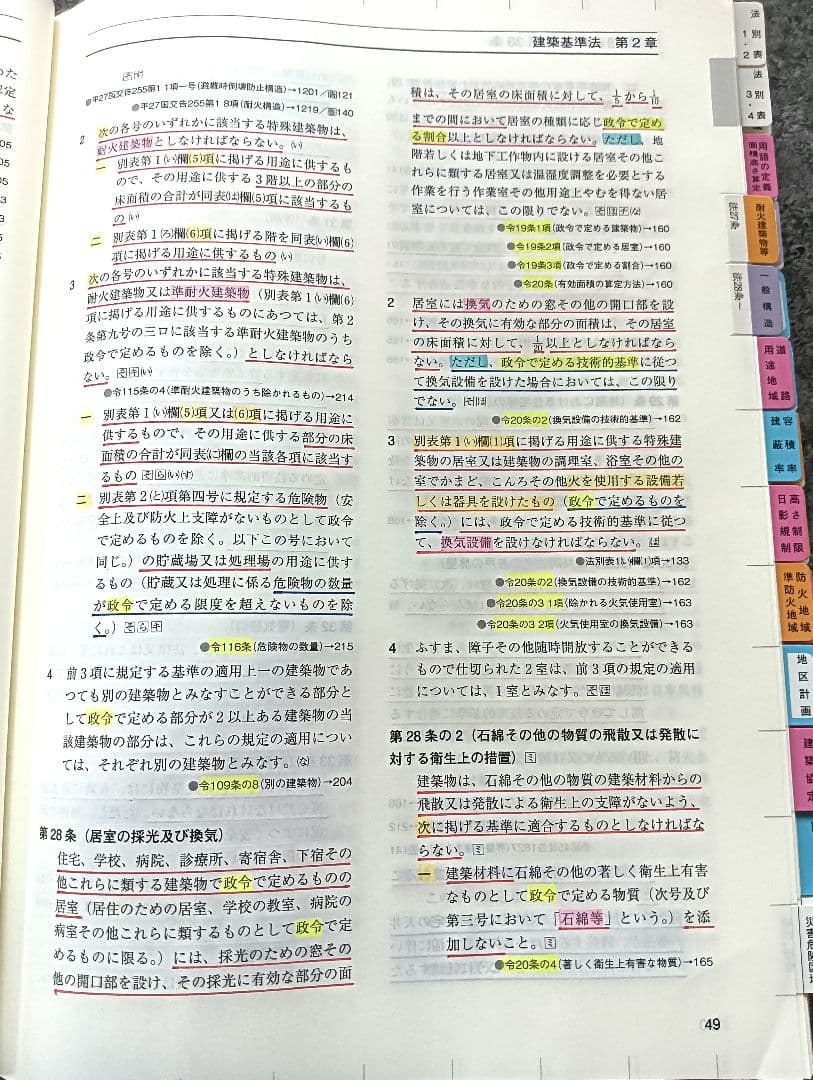 建築基準法 第2章
告示
●平27国交告255第1 1項一号(避難時倒壊防止構造)→1201/圖121
●平27国交告255第1 8項(耐火構造)→1219/圖140
2 次の各号のいずれかに該当する特殊建築物は、
耐火建築物としなければならない。(い)
一 別表第1(い)欄(5)項に掲げる用途に供するも
ので、その用途に供する3階以上の部分の
床面積の合計が同表(は)欄(5)項に該当するも
の(い)
二 別表第1(ろ)欄(6)項に掲げる階を同表(い)欄(6)
項に掲げる用途に供するもの(い)
3 次の各号のいずれかに該当する特殊建築物は、
耐火建築物又は準耐火建築物(別表第1(い)欄(6)
項に掲げる用途に供するものにあつては、第2
条第九号の三ロに該当する準耐火建築物のうち
政令で定めるものを除く。)としなければなら
ない。
●令115条の4(準耐火建築物のうち除かれるもの)→214
一 別表第1(い)欄(5)項又は(6)項に掲げる用途に
供するもので、その用途に供する部分の床
面積の合計が同表(に)欄の当該各項に該当す
るもの
二 別表第2(と)項第四号に規定する危険物(安
全上及び防火上支障がないものとして政令
で定めるものを除く。以下この号において
同じ。)の貯蔵場又は処理場の用途に供す
るもの(貯蔵又は処理に係る危険物の数量
が政令で定める限度を超えないものを除
く。)
●令116条(危険物の数量)→215
4 前3項に規定する基準の適用上一の建築物であ
つても別の建築物とみなすことができる部分と
して政令で定める部分が2以上ある建築物の当
該建築物の部分は、これらの規定の適用につい
ては、それぞれ別の建築物とみなす。(な)
●令109条の8(別の建築物)→204
第28条(居室の採光及び換気)
住宅、学校、病院、診療所、寄宿舎、下宿その
他これらに類する建築物で政令で定めるものの
居室(居住のための居室、学校の教室、病院の
病室その他これらに類するものとして政令で定
めるものに限る。)には、採光のための窓その
他の開口部を設け、その採光に有効な部分の面
積は、その居室の床面積に対して、1/5から1/10
までの間において居室の種類に応じ政令で定め
る割合以上としなければならない。ただし、地
階若しくは地下工作物内に設ける居室その他こ
れらに類する居室又は温湿度調整を必要とする
作業を行う作業室その他用途上やむを得ない居
室については、この限りでない。
●令19条1項(政令で定める建築物)→160
●令19条2項(政令で定める居室)→160
●令19条3項(政令で定める割合)→160
●令20条(有効面積の算定方法)→160
2 居室には換気のための窓その他の開口部を設
け、その換気に有効な部分の面積は、その居室
の床面積に対して、1/20以上としなければなら
ない。ただし、政令で定める技術的基準に従つ
て換気設備を設けた場合においては、この限り
でない。
●令20条の2(換気設備の技術的基準)→162
3 別表第1(い)欄(1)項に掲げる用途に供する特殊建
築物の居室又は建築物の調理室、浴室その他の
室でかまど、こんろその他火を使用する設備若
しくは器具を設けたもの(政令で定めるものを
除く。)には、政令で定める技術的基準に従つ
て、換気設備を設けなければならない。
●法別表1(い)欄(1)項→133
●令20条の2(換気設備の技術的基準)→162
●令20条の3 1項(除かれる火気使用室)→163
●令20条の3 2項(火気使用室の換気設備)→163
4 ふすま、障子その他随時開放することができる
もので仕切られた2室は、前3項の規定の適用
については、1室とみなす。
第28条の2(石綿その他の物質の飛散又は発散に
対する衛生上の措置)
建築物は、石綿その他の物質の建築材料からの
飛散又は発散による衛生上の支障がないよう、
次に掲げる基準に適合するものとしなければな
らない。
一 建築材料に石綿その他の著しく衛生上有害
なものとして政令で定める物質(次号及び
第三号において「石綿等」という。)を添
加しないこと。
●令20条の4(著しく衛生上有害な物質)→165
49
法別表1・2
法別表3・4
用語の定義
面積高さ算定
耐火建築物等
法27条
一般構造
法28条〜
道路
用途地域
容積率
建蔽率
高さ制限
日影規制
防火地域
準防火地域
地区計画
建築協定
災害危険区域